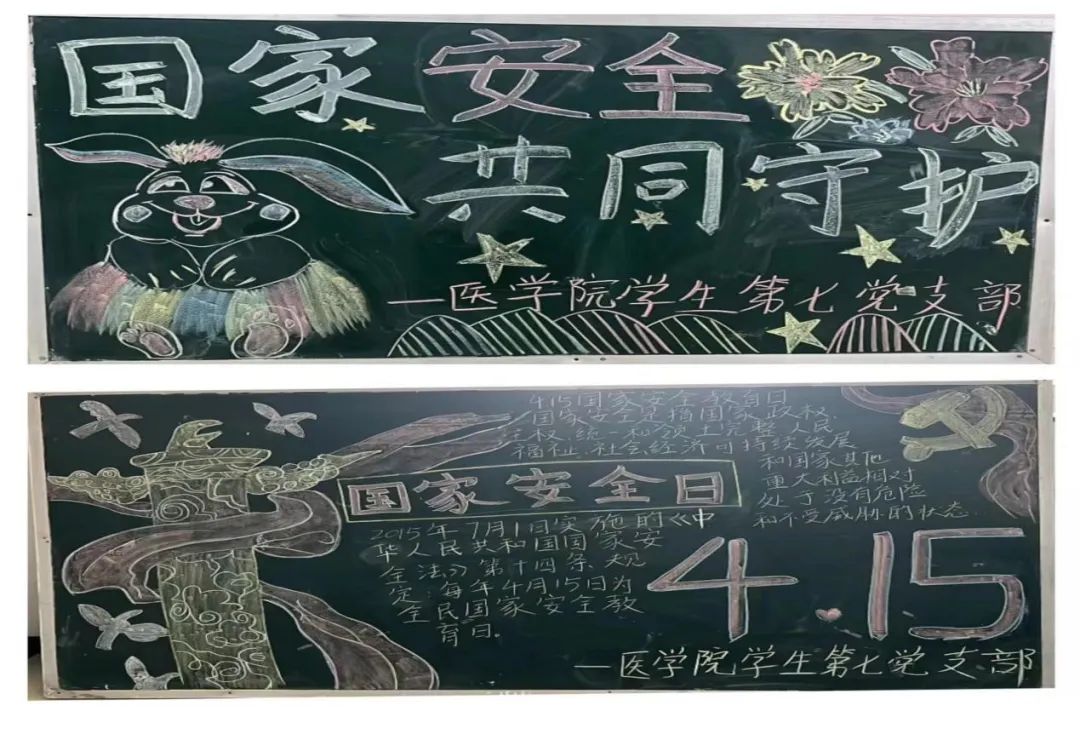 国家安全
共同守护
一医学院学生第七党支部
4.15国家安全教育日
国家安全是指国家政权、
主权、统一和领土完整、人民
福祉、社会经济可持续发展
和国家其他
重大利益相对
处于没有危险
和不受威胁的状态
国家安全日
2015年7月1日实施的《中
华人民共和国国家安
全法》第十四条规
定:每年4月15日为
全民国家安全教
育日。
4.15
一医学院学生第七党支部